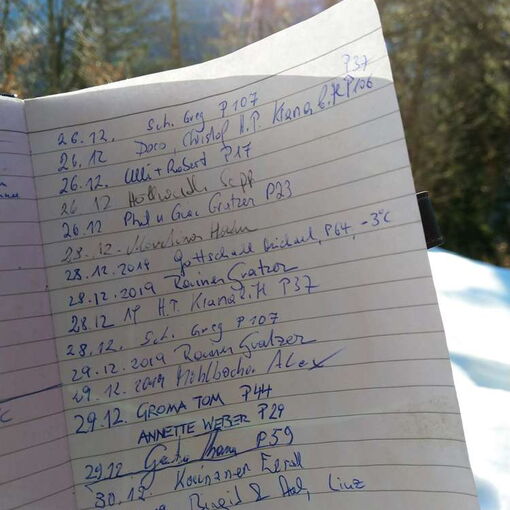 P37
26.12. Sch. Greg P107
26.12 Doro, Christof, H.P. Kranab.H P106
26.12. Ulli + Robert P17
26 12 Sepp
26.12 Phil u. Grac Gratzer P23
28.12.
28.12.2019 Gottschall Michael, P64, -3°C
28.12.2019 Rainer Gratzer
28.12 19 H.P. Kranab.H P37
28.12. Sch. Greg P107
29.12.2019 Rainer Gratzer
29.12.2019 Mühlbacher Alex
29.12. GROMA TOM P44
ANNETTE WEBER P29
29.12 P59
30.12.
Birgit & Linz